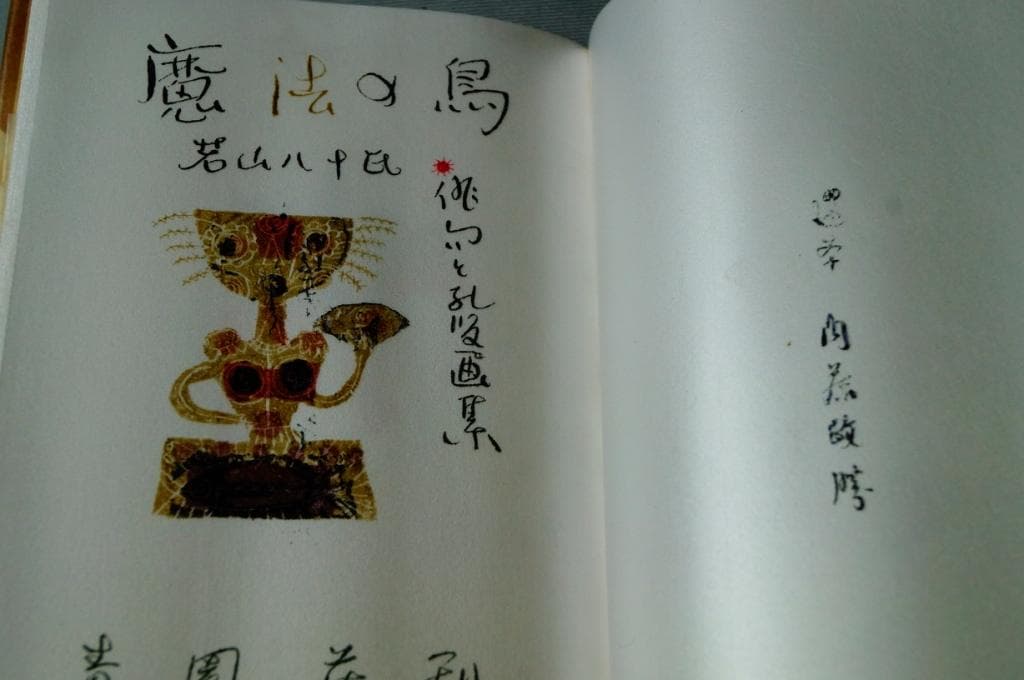 魔法の鳥
若山八十氏
俳句と孔版画集
青園荘刊
内藤政勝